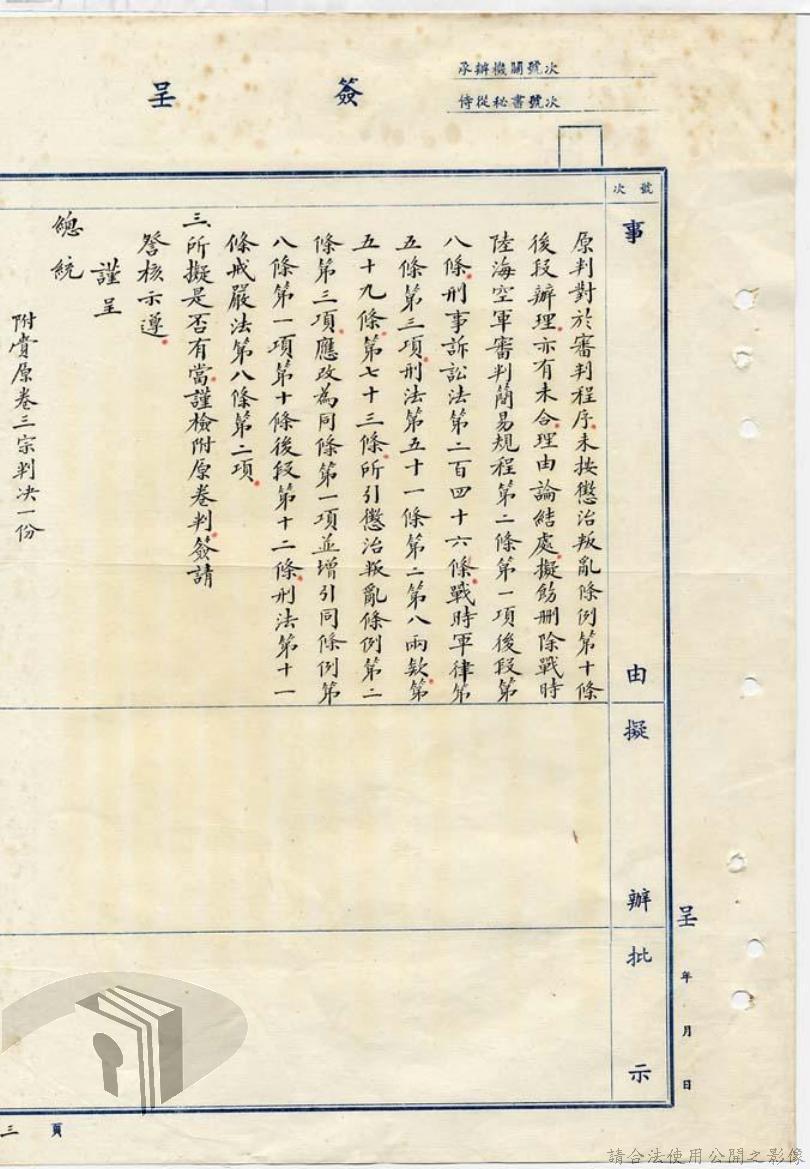 簽呈
承辦機關號次
侍從秘書號次
號次
事由
擬辦
批示
呈 年 月 日
原判對於審判程序未按懲治叛亂條例第十條
後段辦理亦有未合理由論結處擬飭刪除戰時
陸海空軍審判簡易規程第二條第一項後段第
八條刑事訴訟法第二百四十六條戰時軍律第
五條第三項刑法第五十一條第二第八兩款第
五十九條第七十三條所引懲治叛亂條例第二
條第三項應改為同條第一項並增引同條例第
八條第一項第十條後段第十二條刑法第十一
條戒嚴法第八條第二項
三、所擬是否有當謹檢附原卷判簽請
詧核示遵
謹呈
總統
附賫原卷三宗判決一份
三頁
請合法使用公開之影像